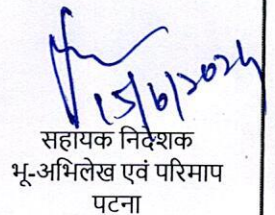 15/6/2024
सहायक निदेशक
भू-अभिलेख एवं परिमाप
पटना